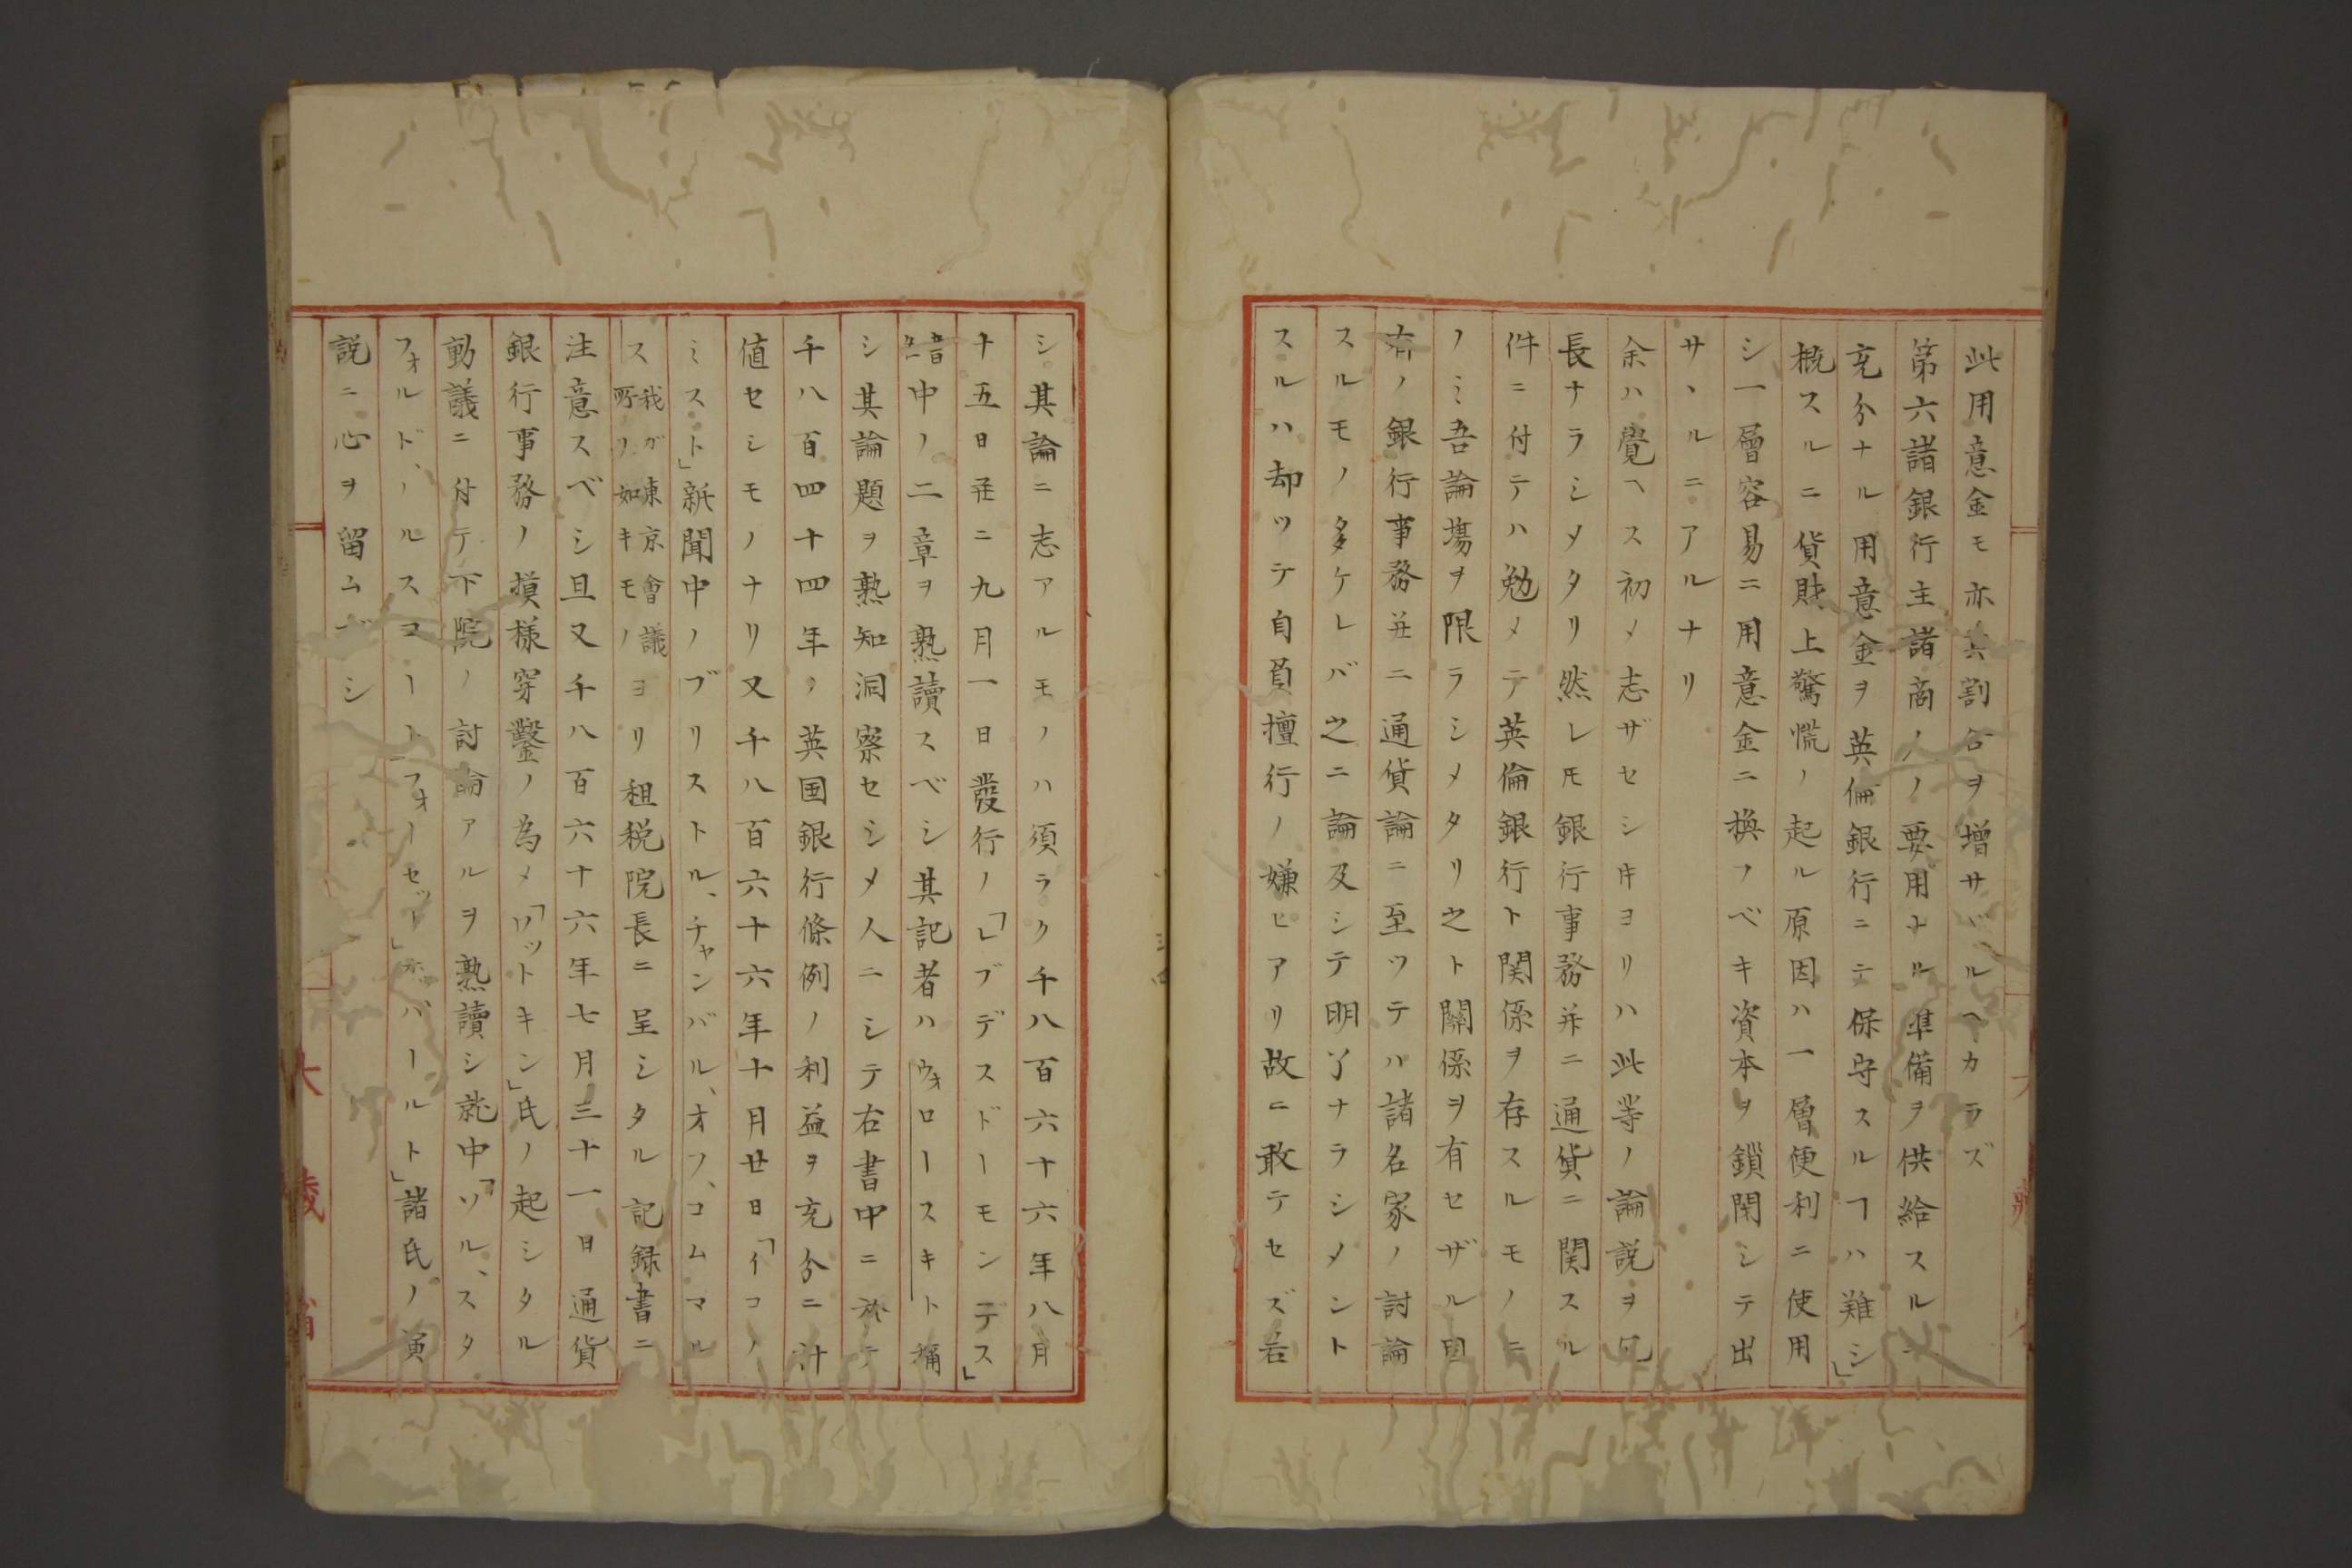 此用意金モ亦其割合ヲ増サヾルヘカラズ
第六諸銀行主諸商人ノ要用ナル準備ヲ供給スルニ
充分ナル用意金ヲ英倫銀行ニテ保守スルヿハ難シ」
概スルニ貨財上驚慌ノ起ル原因ハ一層便利ニ使用
シ一層容易ニ用意金ニ換フベキ資本ヲ鎖閉シテ出
サヽルニアルナリ
余ハ覺ヘス初メ志ザセシヰヨリハ此等ノ論説ヲ冗
長ナラシメタリ然レ𪜈銀行事務并ニ通貨ニ関スル
件ニ付テハ勉メテ英倫銀行ト関係ヲ存スルモノニ
ノミ吾論塲ヲ限ラシメタリ之ト關係ヲ有セザル固
有ノ銀行事務並ニ通貨論ニ至ツテハ諸名家ノ討論
スルモノ多ケレバ之ニ論及シテ明了ナラシメント
スルハ却ツテ自負擅行ノ嫌ヒアリ故ニ敢テセズ若
シ其論ニ志アルモノハ須ラク千八百六十六年八月
十五日並ニ九月一日發行ノ「レブデスドーモンデス」
中ノ二章ヲ熟讀スベシ其記者ハウォロースキト稱
シ其論題ヲ熟知洞察セシメ人ニシテ右書中ニ於テ
千八百四十四年ノ英国銀行條例ノ利益ヲ充分ニ計
値セシモノナリ又千八百六十六年十月廿日「イコノ
ミスト」新聞中ノブリストル、チャンバル、オフ、コムマル
ス我ガ東京會議所ノ如キモノヨリ租税院長ニ呈シタル記録書ニ
注意スベシ且又千八百六十六年七月三十一日通貨
銀行事務ノ摸様穿鑿ノ為メ「ワットキン」氏ノ起シタル
動議ニ付テ下院ノ討論アルヲ熟讀シ就中「ソル、スタ
フォルド、ノルスコート」「フォーセット」「ホバールト」諸氏ノ演
説ニ心ヲ留ムベシ
大藏省